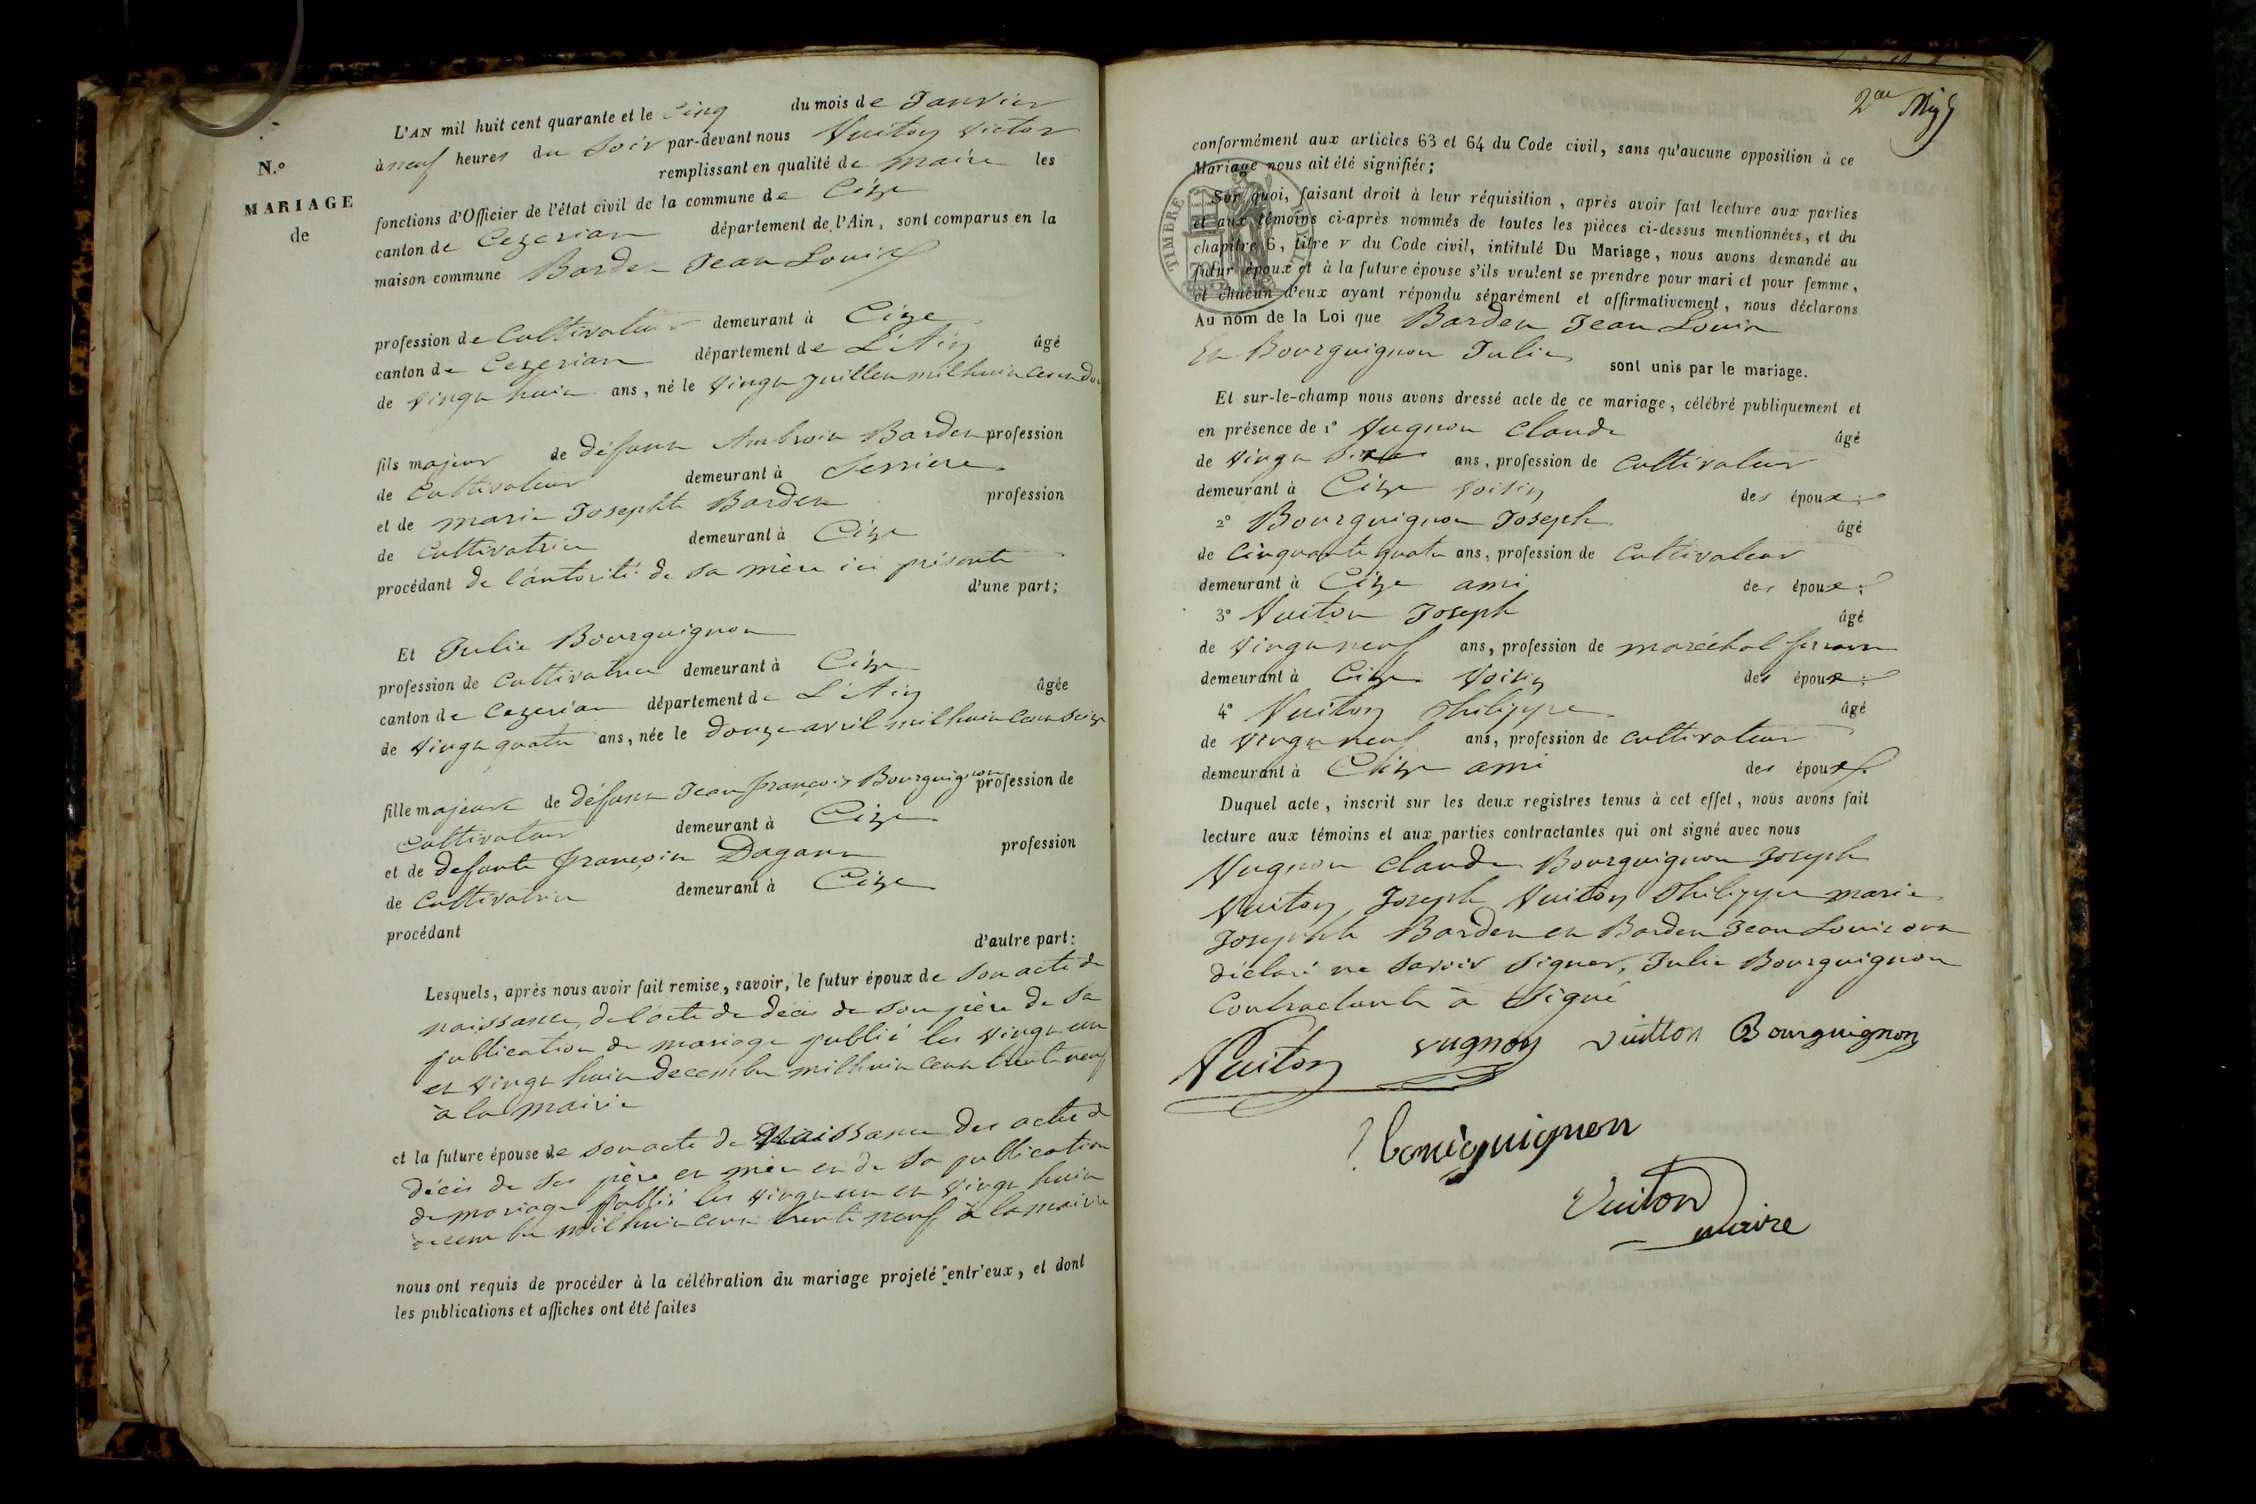 N.º
MARIAGE
de
L'AN mil huit cent quarante et le Cinq du mois de Janvier
à neuf heures du Soir par-devant nous Vuiton Victor
remplissant en qualité de Maire les
fonctions d'Officier de l'état civil de la commune de Cize
canton de Cezerian département de l'Ain, sont comparus en la
maison commune Barden Jean Louis
profession de Cultivateur demeurant à Cize
canton de Cezerian département de L'Ain âgé
de vingt huit ans, né le vingt Juillet mil huit cent
fils majeur de défunt Ambroise Barden profession
de Cultivateur demeurant à Serriere
et de marie Josephte Barden profession
de Cultivatrice demeurant à Cize
procédant de l'autorité de sa mère ici présente
d'une part;
Et Julie Bourguignon
profession de Cultivatrice demeurant à Cize
canton de Cezerian département de L'Ain âgée
de vingt quatre ans, née le douze avril mil huit cent seize
fille majeure de défunt Jean françois Bourguignon profession de
Cultivateur demeurant à Cize
et de defunte françoise Dagann profession
de Cultivatrice demeurant à Cize
procédant
d'autre part:
Lesquels, après nous avoir fait remise, savoir, le futur époux de son acte de
naissance, de l'acte de décès de son père de sa
publication de mariage publié les vingt un
et vingt huit decembre mil huit cent trente neuf
à la mairie
et la future épouse de son acte de Naissance des actes de
décès de ses père et mère et de sa publication
de mariage publié les vingt un et vingt huit
decembre mil huit cent trente neuf à la mairie
nous ont requis de procéder à la célébration du mariage projeté entr'eux, et dont
les publications et affiches ont été faites
conformément aux articles 63 et 64 du Code civil, sans qu'aucune opposition à ce
Mariage nous ait été signifiée;
TIMBRE ROYAL
Sur quoi, faisant droit à leur réquisition, après avoir fait lecture aux parties
et aux témoins ci-après nommés de toutes les pièces ci-dessus mentionnées, et du
chapitre 6, titre v du Code civil, intitulé Du Mariage, nous avons demandé au
futur époux et à la future épouse s'ils veulent se prendre pour mari et pour femme,
et chacun d'eux ayant répondu séparément et affirmativement, nous déclarons
Au nom de la Loi que Barden Jean Louis
Et Bourguignon Julie sont unis par le mariage.
Et sur-le-champ nous avons dressé acte de ce mariage, célébré publiquement et
en présence de 1º Vugnon Claude âgé
de vingt ans, profession de Cultivateur
demeurant à Cize voisin des époux;
2º Bourguignon Joseph âgé
de Cinquante quatre ans, profession de Cultivateur
demeurant à Cize ami des époux;
3º Vuiton Joseph âgé
de vingt neuf ans, profession de maréchal ferrant
demeurant à Cize voisin des époux;
4º Vuiton Philippe âgé
de vingt neuf ans, profession de cultivateur
demeurant à Cize ami des époux.
Duquel acte, inscrit sur les deux registres tenus à cet effet, nous avons fait
lecture aux témoins et aux parties contractantes qui ont signé avec nous
Vugnon Claude Bourguignon Joseph
Vuiton Joseph Vuiton Philippe marie
Josephte Barden et Barden Jean Louis ont
déclaré ne savoir signer, Julie Bourguignon
Contractante à signé
Vuiton vugnon vuitton Bourguignon
bourguignon
Vuiton
maire